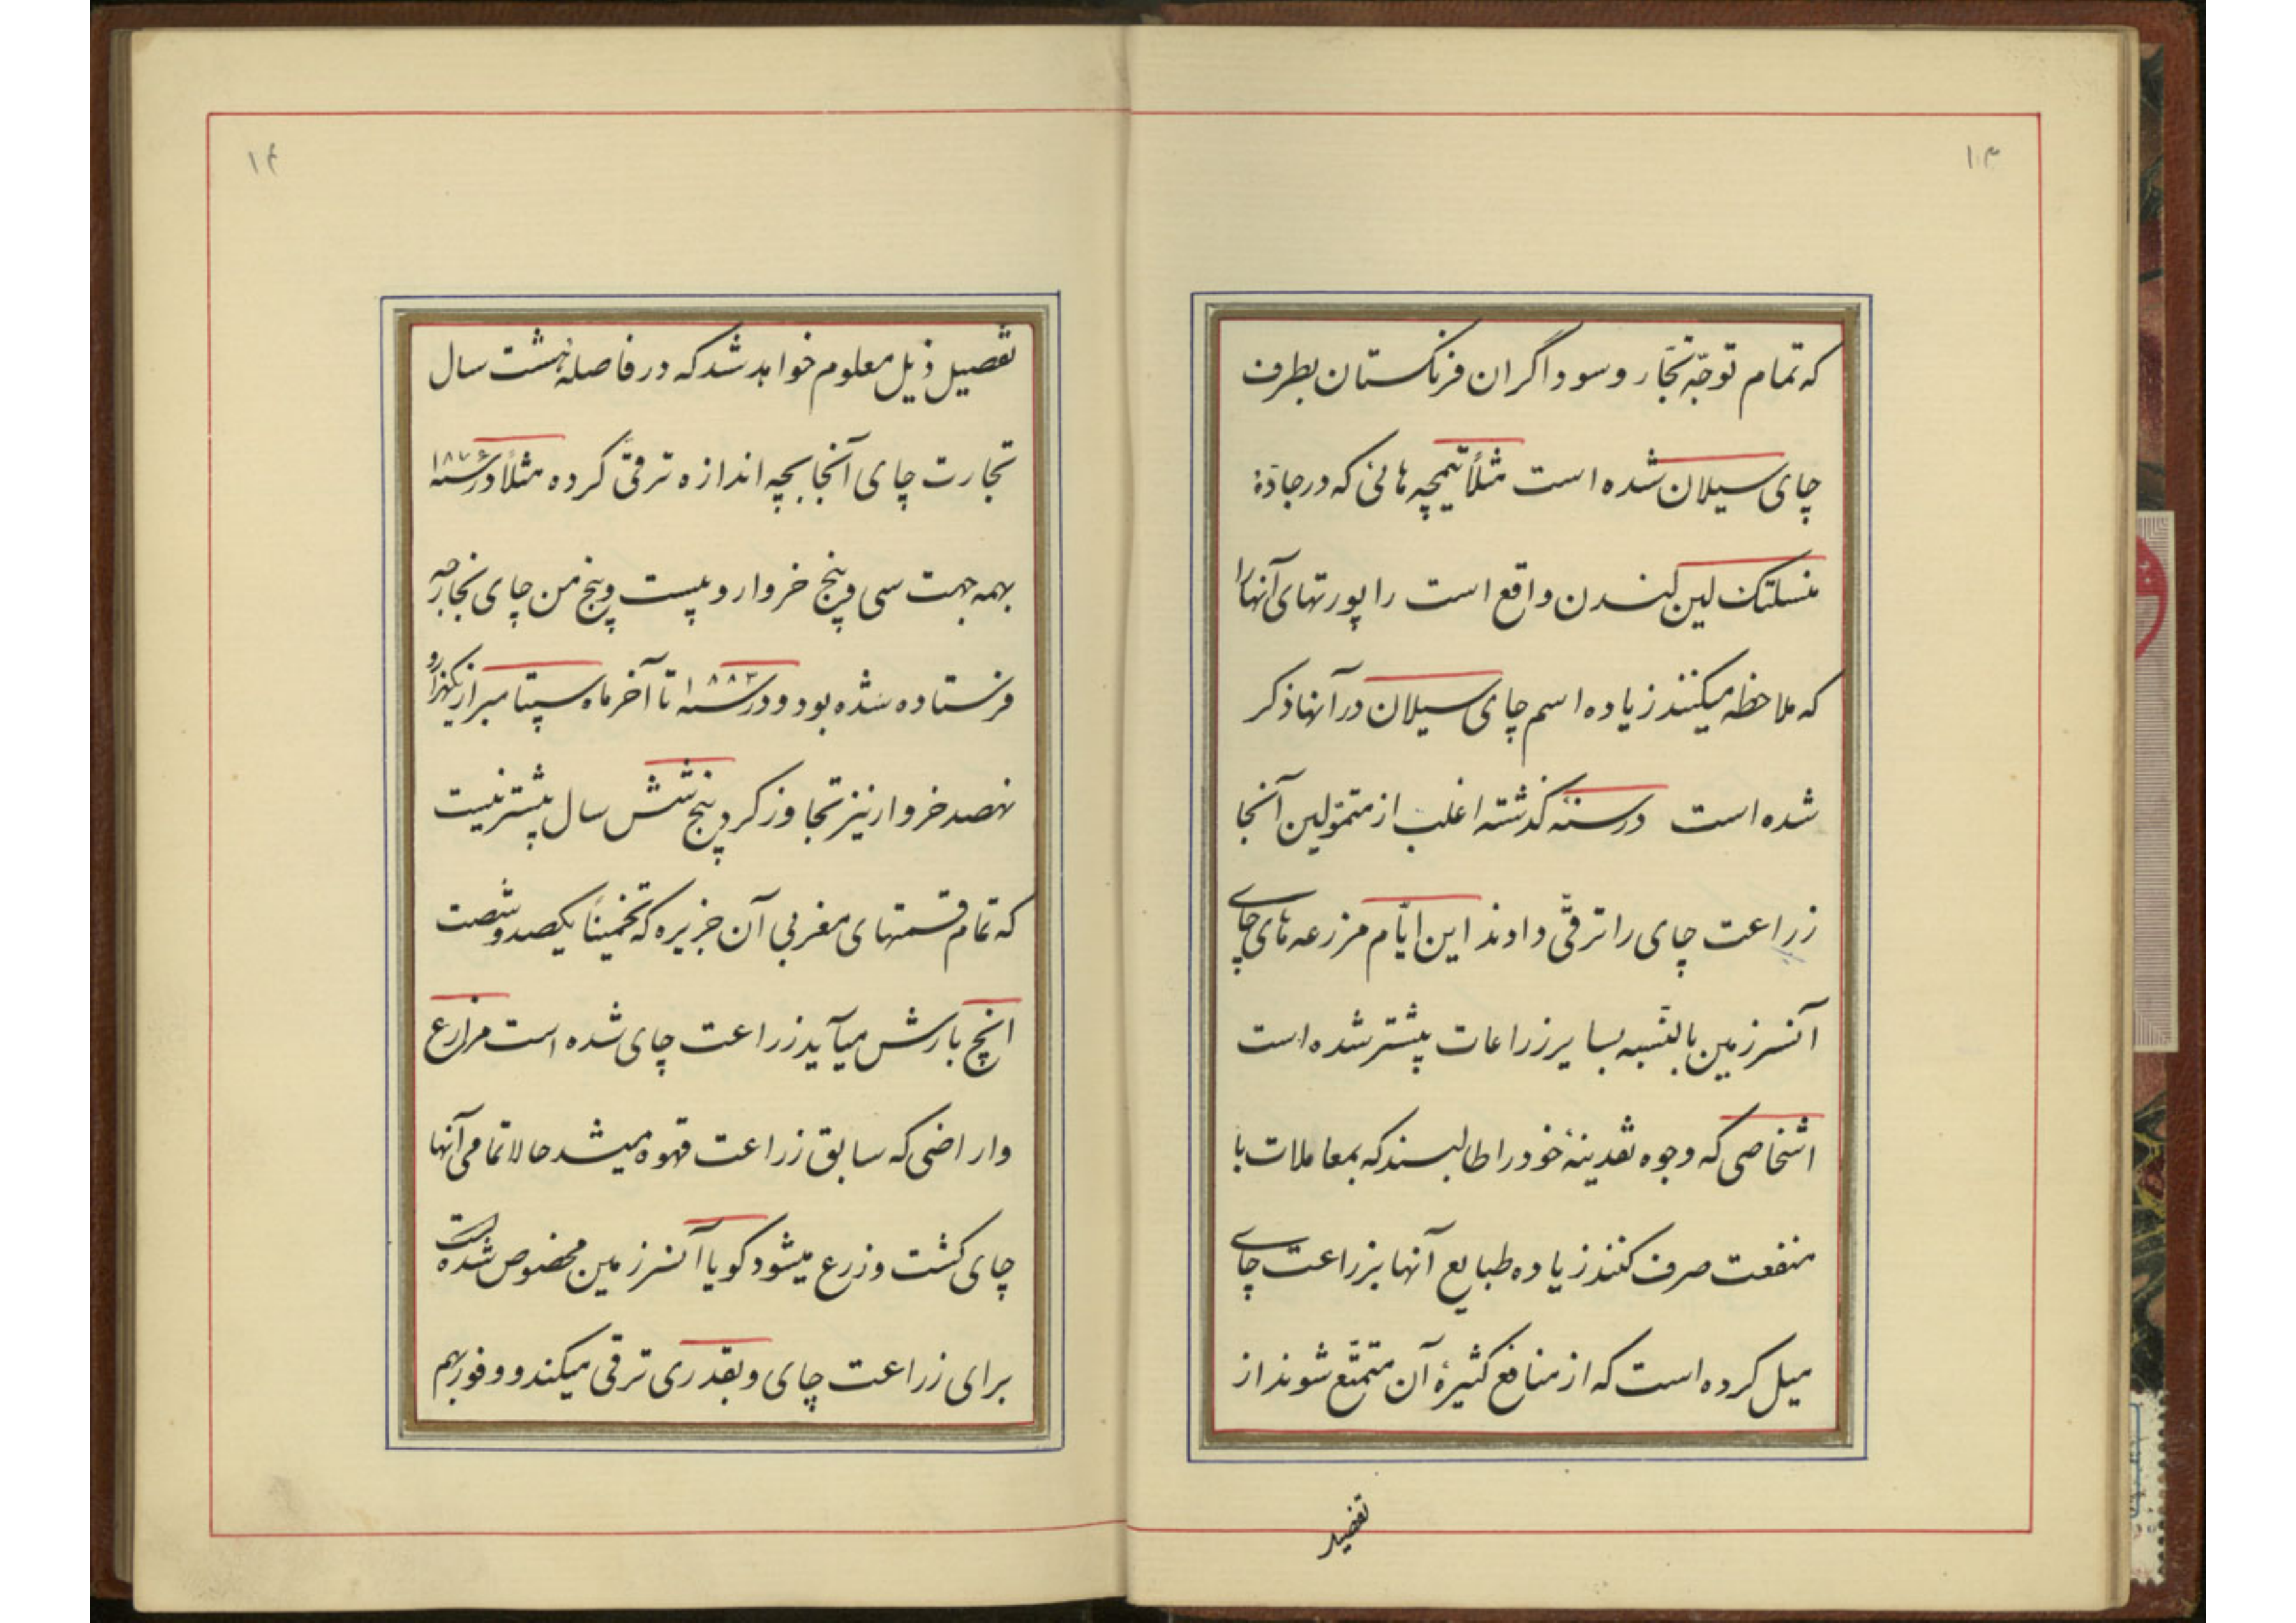 ۱۳
که تمام توجّه تجّار و سوداگران فرنگستان بطرف
چای سیلان شده است مثلاً تیمچه هائی که در جادّهٔ
منسلنک لین لندن واقع است راپورتهای آنها را
که ملاحظه میکنند زیاده اسم چای سیلان در آنها ذکر
شده است در سنهٔ گذشته اغلب از متموّلین آنجا
زراعت چای را ترقّی دادند این ایّام مزرعه های چای
آنسرزمین بالنّسبه بسایر زراعات بیشتر شده است
اشخاصی که وجوه نقدینهٔ خود را طالبسند که بمعاملات با
منفعت صرف کنند زیاده طبایع آنها بزراعت چای
میل کرده است که از منافع کثیرهٔ آن متمتّع شوند از
تفصیل
۱۴
تفصیل ذیل معلوم خواهد شد که در فاصلهٔ هشت سال
تجارت چای آنجا بچه اندازه ترقّی کرده مثلاً در سنه ۱۸۷۶
بهمه جهت سی و پنج خروار و بیست و پنج من چای بخارجه
فرستاده شده بود و در سنه ۱۸۸۳ تا آخر ماه سپتامبر از یکهزار و
نهصد خروار نیز تجاوز کرد پنج شش سال بیشتر نیست
که تمام قسمتهای مغربی آن جزیره که تخمیناً یکصد و شصت
انچ بارش میآید زراعت چای شده است مزارع
و اراضی که سابق زراعت قهوه میشد حالا تمامی آنها
چای کشت و زرع میشود گویا آنسرزمین مخصوص شده است
برای زراعت چای و بقدری ترقی میکند و وفور بهم